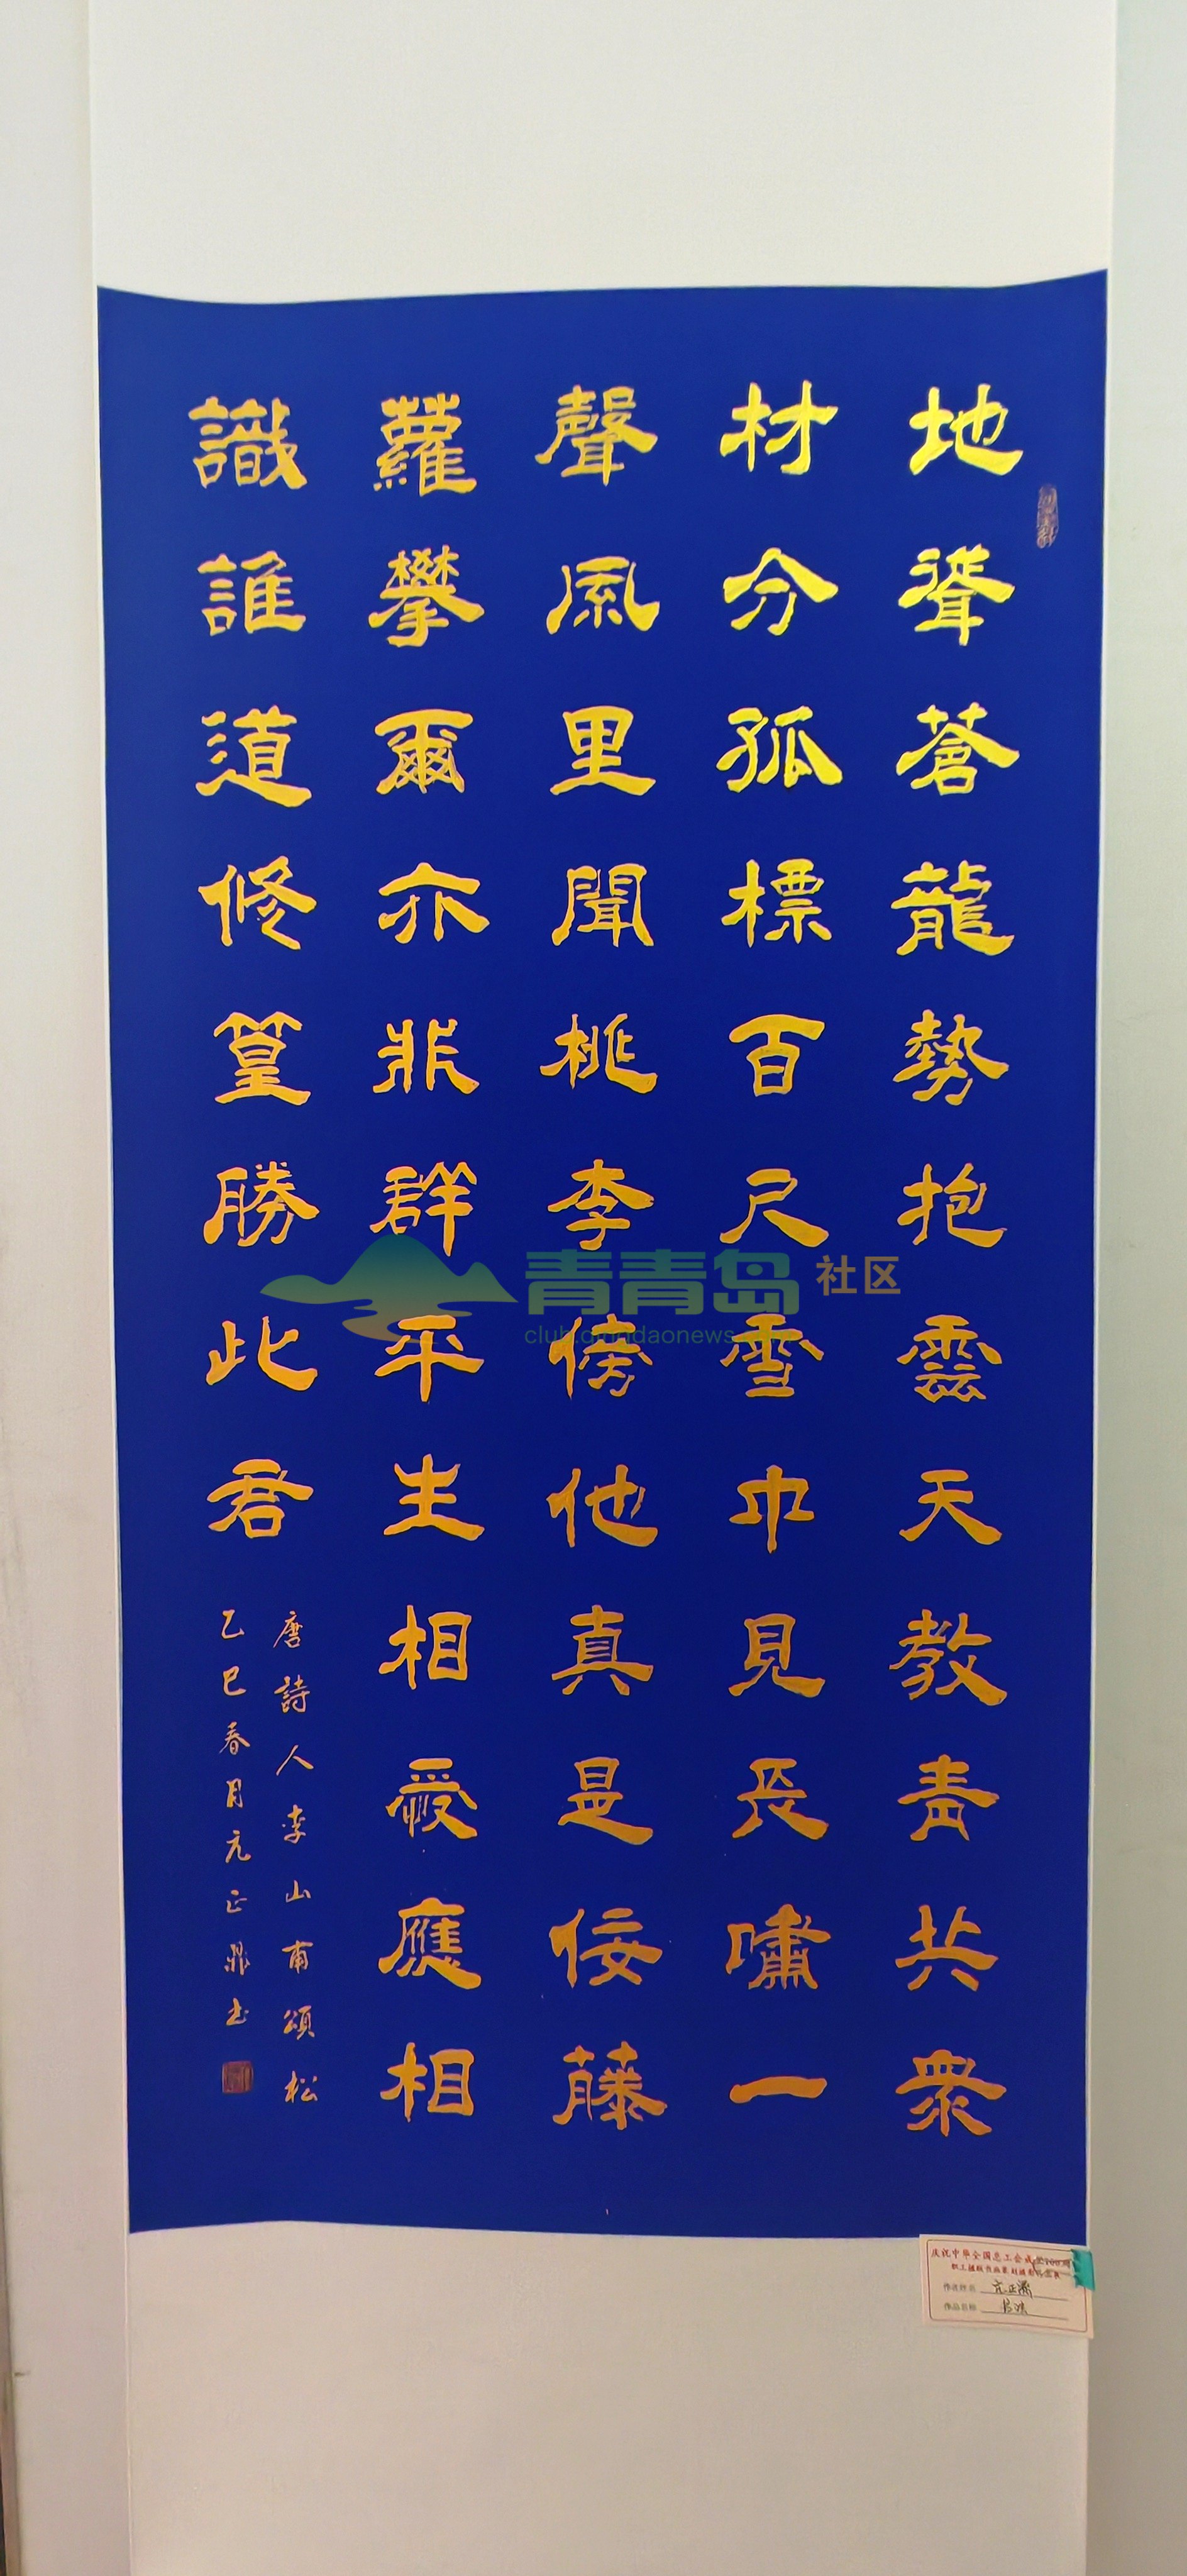 地聳蒼龍勢抱雲天教青共衆
材分孤標百尺雪中見長嘯一
聲風里聞桃李傍他真是佞藤
蘿攀爾亦非群平生相愛應相
識誰道修篁勝此君
唐詩人李山甫頌松
乙巳春月亢正鼎书
青青岛社区
club.qingdaonews.com
庆祝中华全国总工会成立100周
作者姓名
作品名称 书法